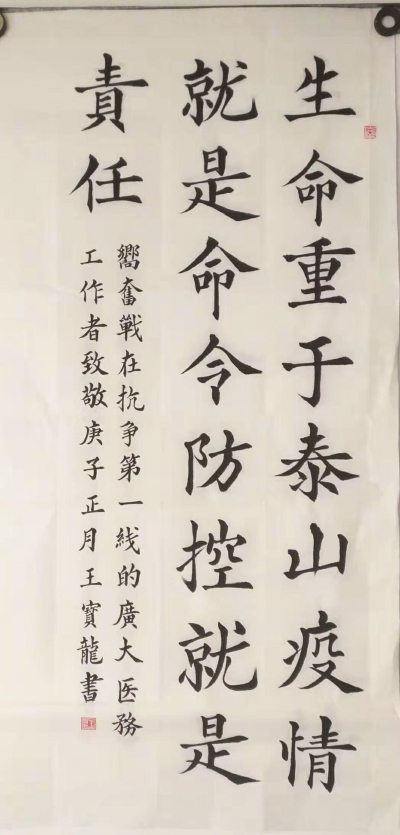 生命重于泰山疫情
就是命令防控就是
責任
嚮奮戰在抗争第一线的廣大医務
工作者致敬庚子正月王寳龍書